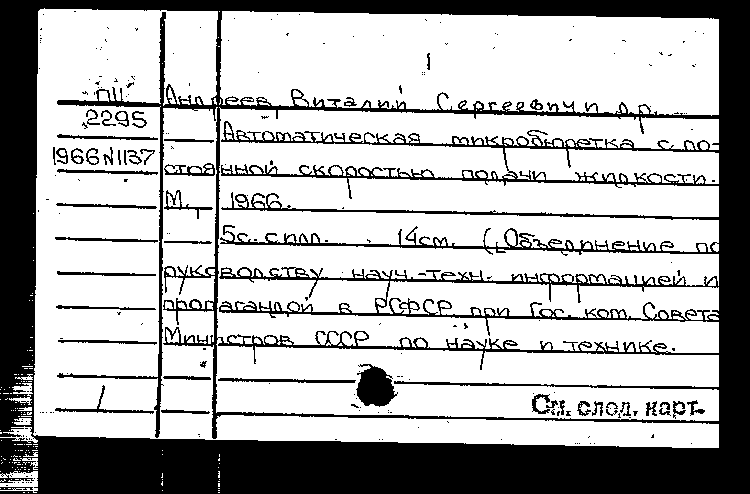 1
ПII Андреев, Виталий Сергеевич и др.
2295 Автоматическая микробюретка с по-
1966№1137 стоянной скоростью подачи жидкости.
М., 1966.
5с. с илл. 14см. (Объединение по
руководству науч.-техн. информацией и
пропагандой в РСФСР при Гос. ком. Совета
Министров СССР по науке и технике.
См. след. карт.